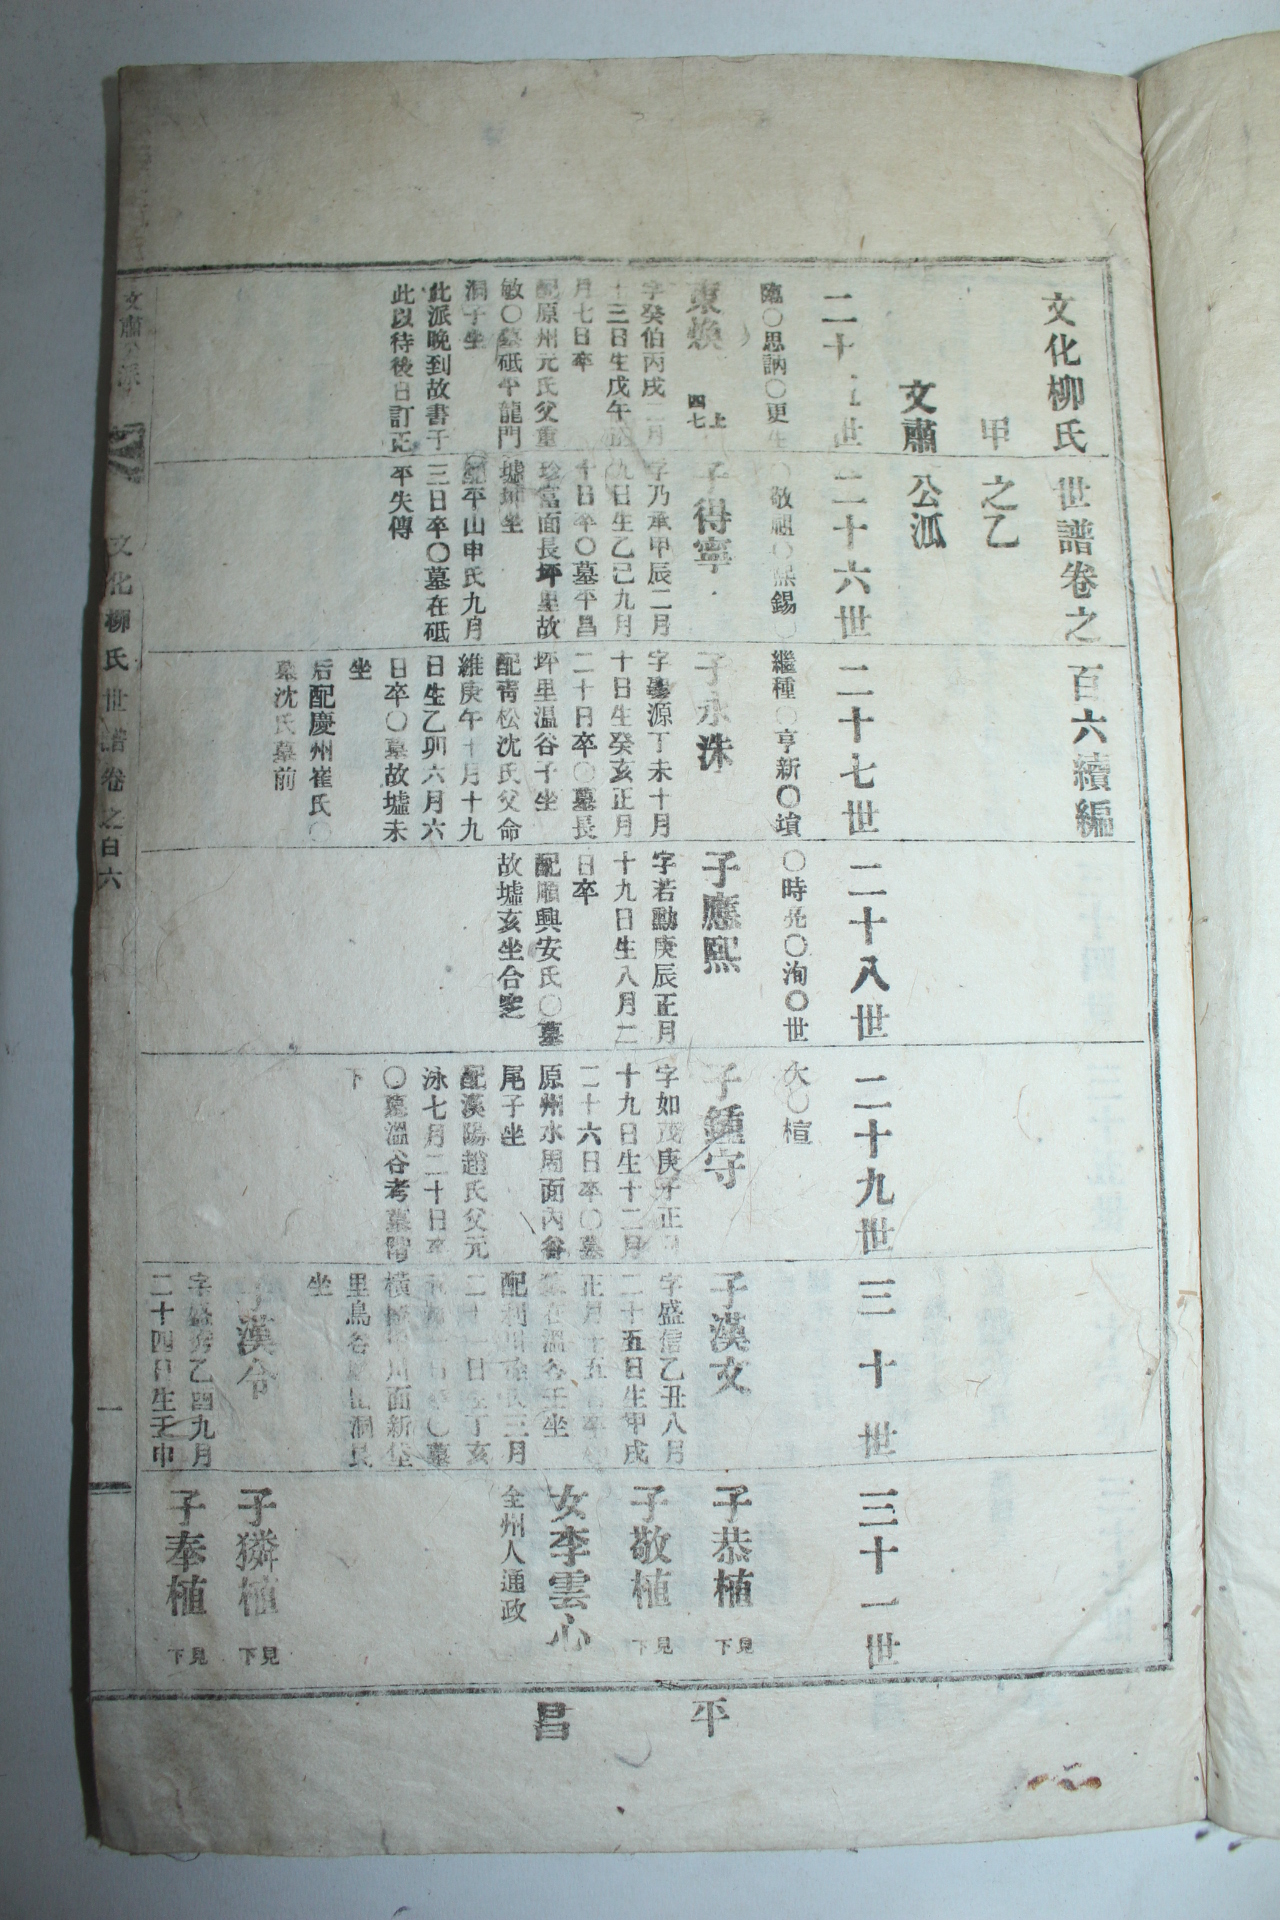 文化柳氏世譜卷之百六續編
甲之乙
文肅公派
二十五世
二十六世
二十七世
二十八世
二十九世
三十世
三十一世
臨〇思訥〇更生〇敬祖〇熙錫〇
繼種〇亨新〇塤
〇時亮〇洵〇世
大〇楦
東煥
上
四七
字癸伯丙戌二月
十三日生戊午
月七日卒
配原州元氏父重
敏〇墓砥平龍門
洞子坐
此派晚到故書于
此以待後日訂正
子得寧
字乃承甲辰二月
九日生乙巳九月
十日卒〇墓平昌
珍富面長坪里故
墟坤坐
配平山申氏九月
三日卒〇墓在砥
平失傳
子永洙
字聖源丁未十月
十日生癸亥正月
二十日卒〇墓長
坪里温谷子坐
配靑松沈氏父命
維庚午十月十九
日生乙卯六月六
日卒〇墓故墟未
坐
后配慶州崔氏〇
墓沈氏墓前
子應熙
字若勳庚辰正月
十九日生八月二
日卒
配順興安氏〇墓
故墟亥坐合窆
子鍾守
字如茂庚子正月
十九日生十二月
二十六日卒〇墓
原州水周面內谷
尾子坐
配漢陽趙氏父元
泳七月二十日卒
〇墓溫谷考墓階
下
子漢文
字盛信乙丑八月
二十五日生甲戌
正月十五日卒
墓在溫谷壬坐
配利川徐氏三月
二十一日生丁亥
日卒〇墓
橫城川面新垈
里鳥谷洞艮
坐
子漢令
字盛乙酉九月
二十四日生壬申
子恭植
見下
子敬植
見下
女李雲心
全州人通政
子獜植
見下
子奉植
見下
平
昌
文肅公派
文化柳氏世譜卷之百六
一